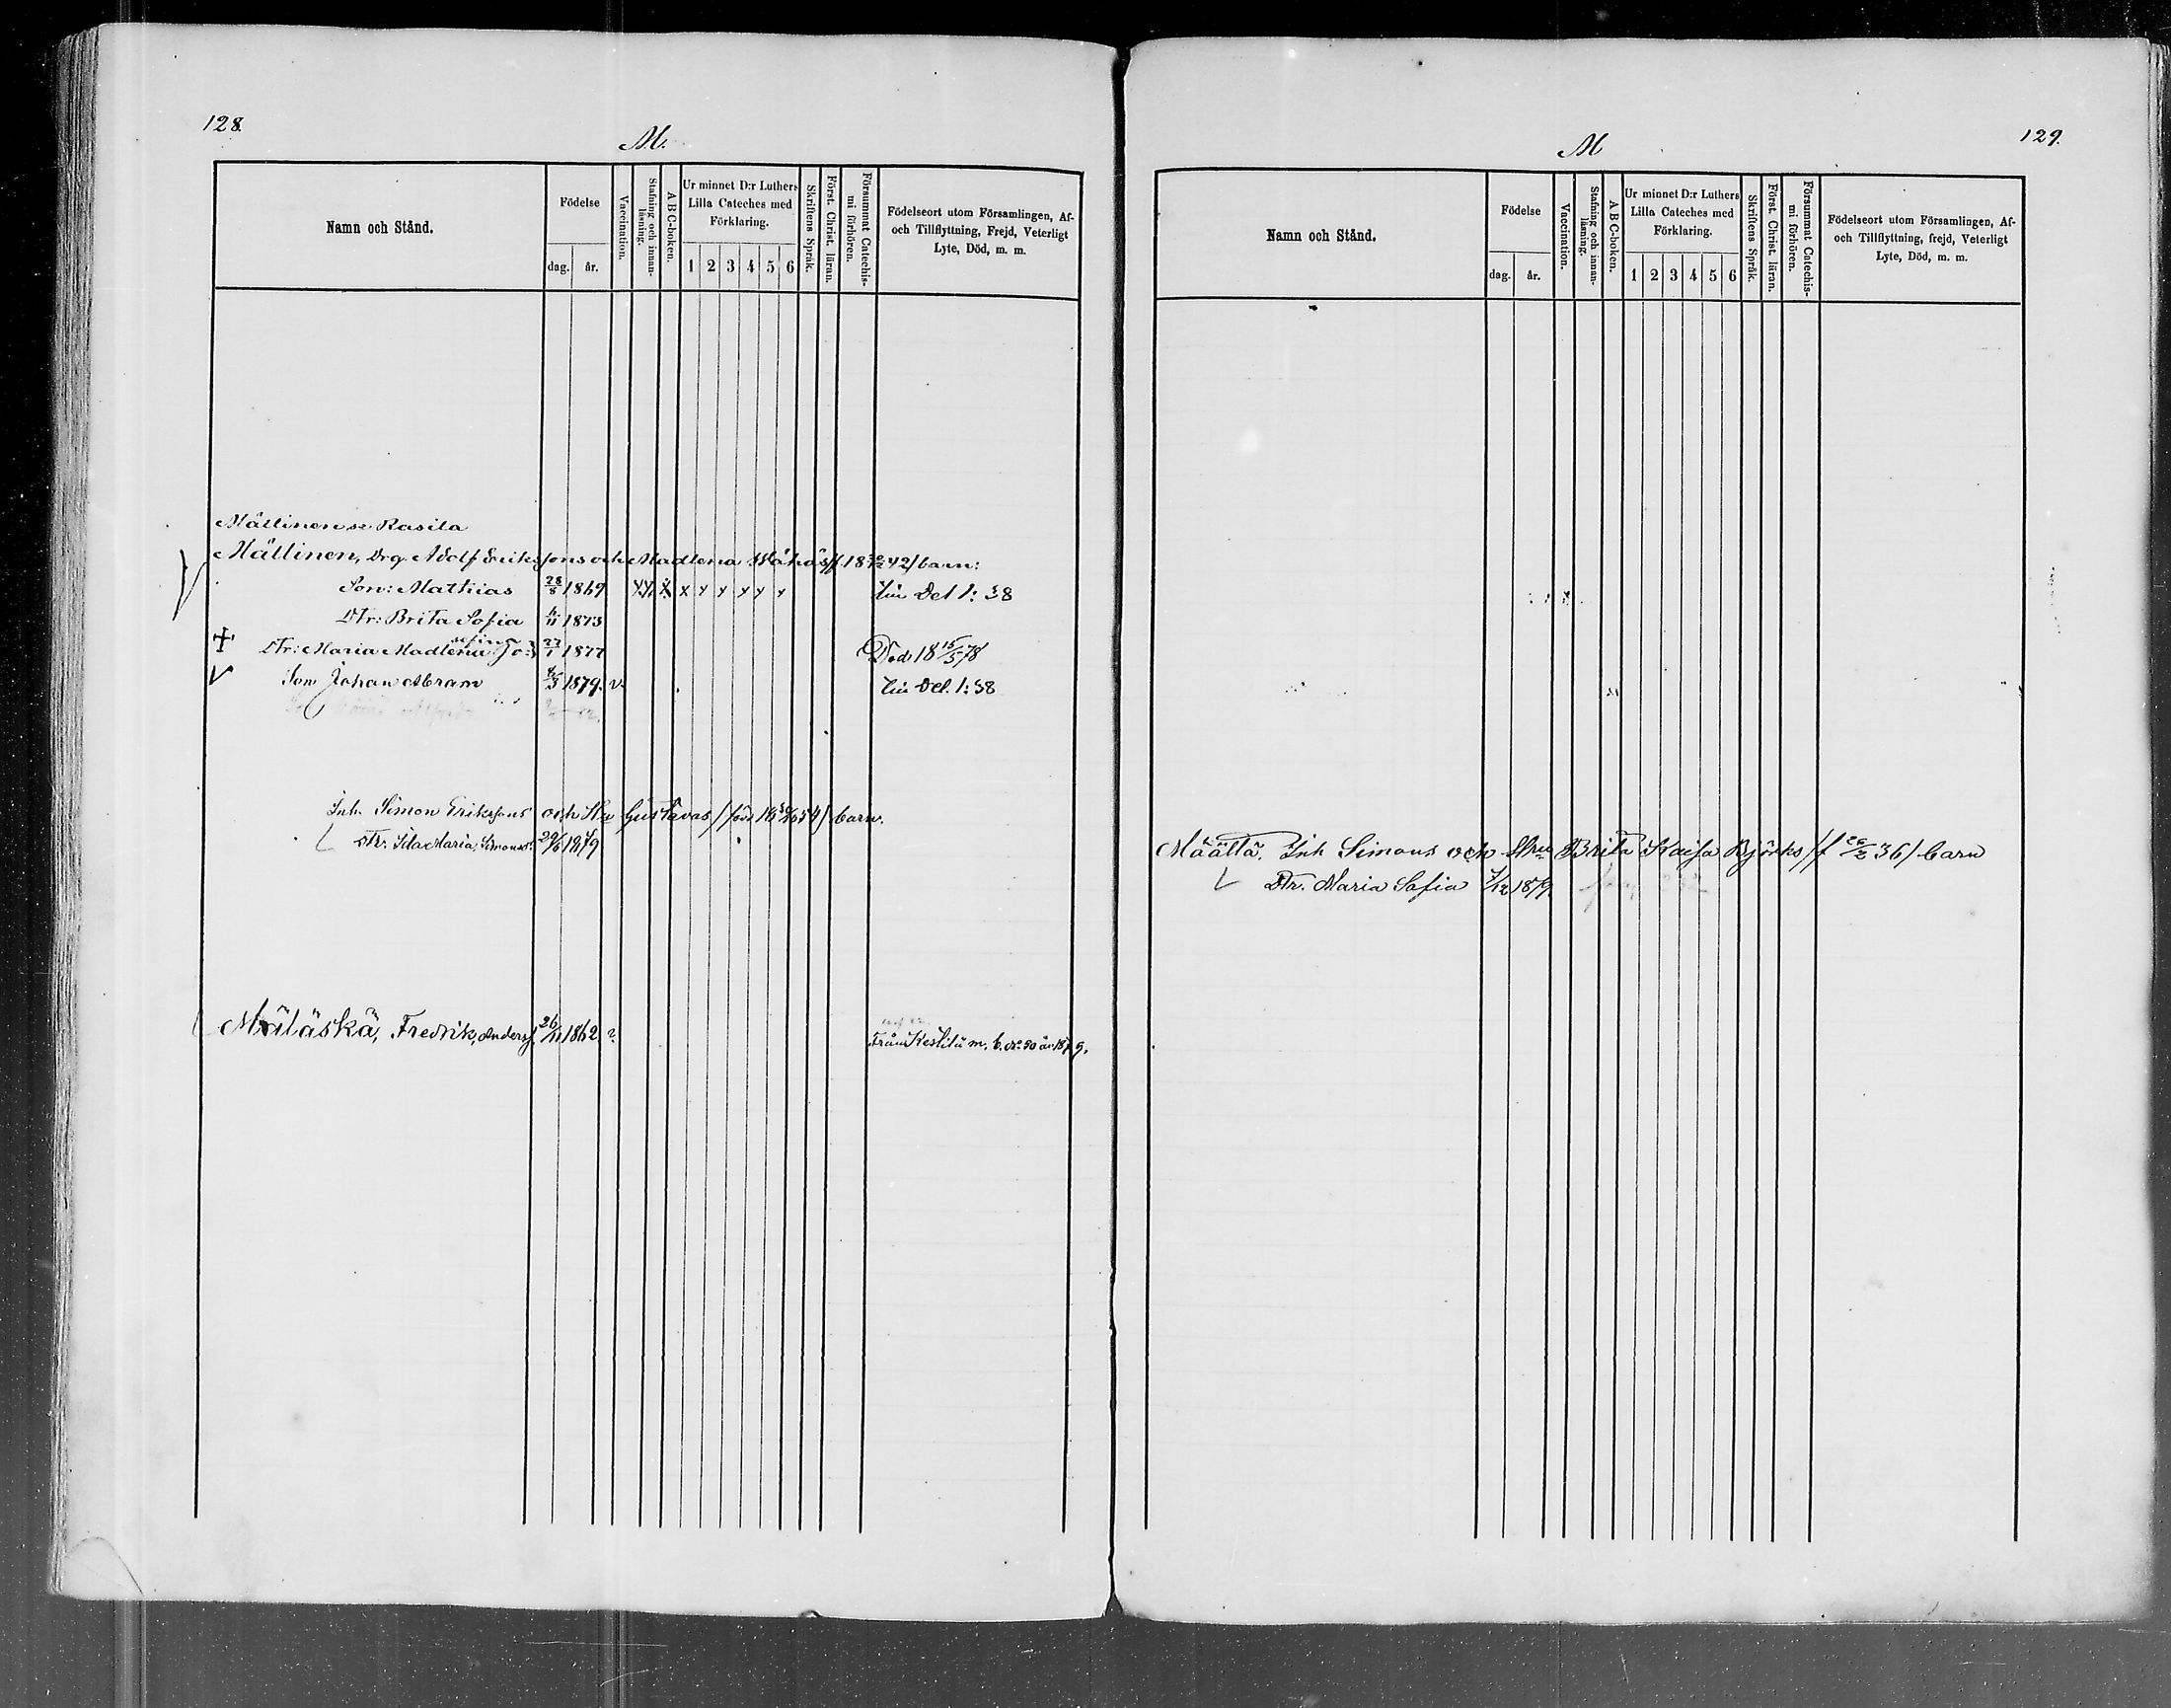 128.
M.
Namn och Stånd.
Födelse
dag.
år.
Vaccination.
Stafning och innan-
läsning.
A B C-boken.
Ur minnet D:r Luthers
Lilla Cateches med
Förklaring.
1 2 3 4 5 6
Skriftens Språk.
Först. Christ. läran.
Försummat Catechis-
mi förhören.
Födelseort utom Församlingen, Af-
och Tillflyttning, Frejd, Veterligt
Lyte, Död, m. m.
Mällinen se Rasila
Mällinen, Drg. Adolf Erikssons och Madlena 42/ barn:
Son: Mathias 28/5 1869 x x x x x x Del 1: 38
Dtr: Brita Sofia 1873
+ Dtr: Maria Madlena Josefina 27/1 1877 Död 18 15/5 78
v Son Johan Abram 1879. v. Del. 1: 38
Inh. Simon Erikssons och Gustavas barn.
Dtr. Ida Maria, Simonsdr. 1879
Mäläskä, Fredrik, Anderss. 26/11 1862. ? Från Kestilä m. b. 1879.
129.
M
Namn och Stånd.
Födelse
dag.
år.
Vaccination.
Stafning och innan-
läsning.
A B C-boken.
Ur minnet D:r Luthers
Lilla Cateches med
Förklaring.
1 2 3 4 5 6
Skriftens Språk.
Först. Christ. läran.
Försummat Catechis-
mi förhören.
Födelseort utom Församlingen, Af-
och Tillflyttning, frejd, Veterligt
Lyte, Död, m. m.
Määttä. Inh Simons och Hru Brita Kaisa Björks /f 36/ barn
Dtr. Maria Safia 7/12 1879.